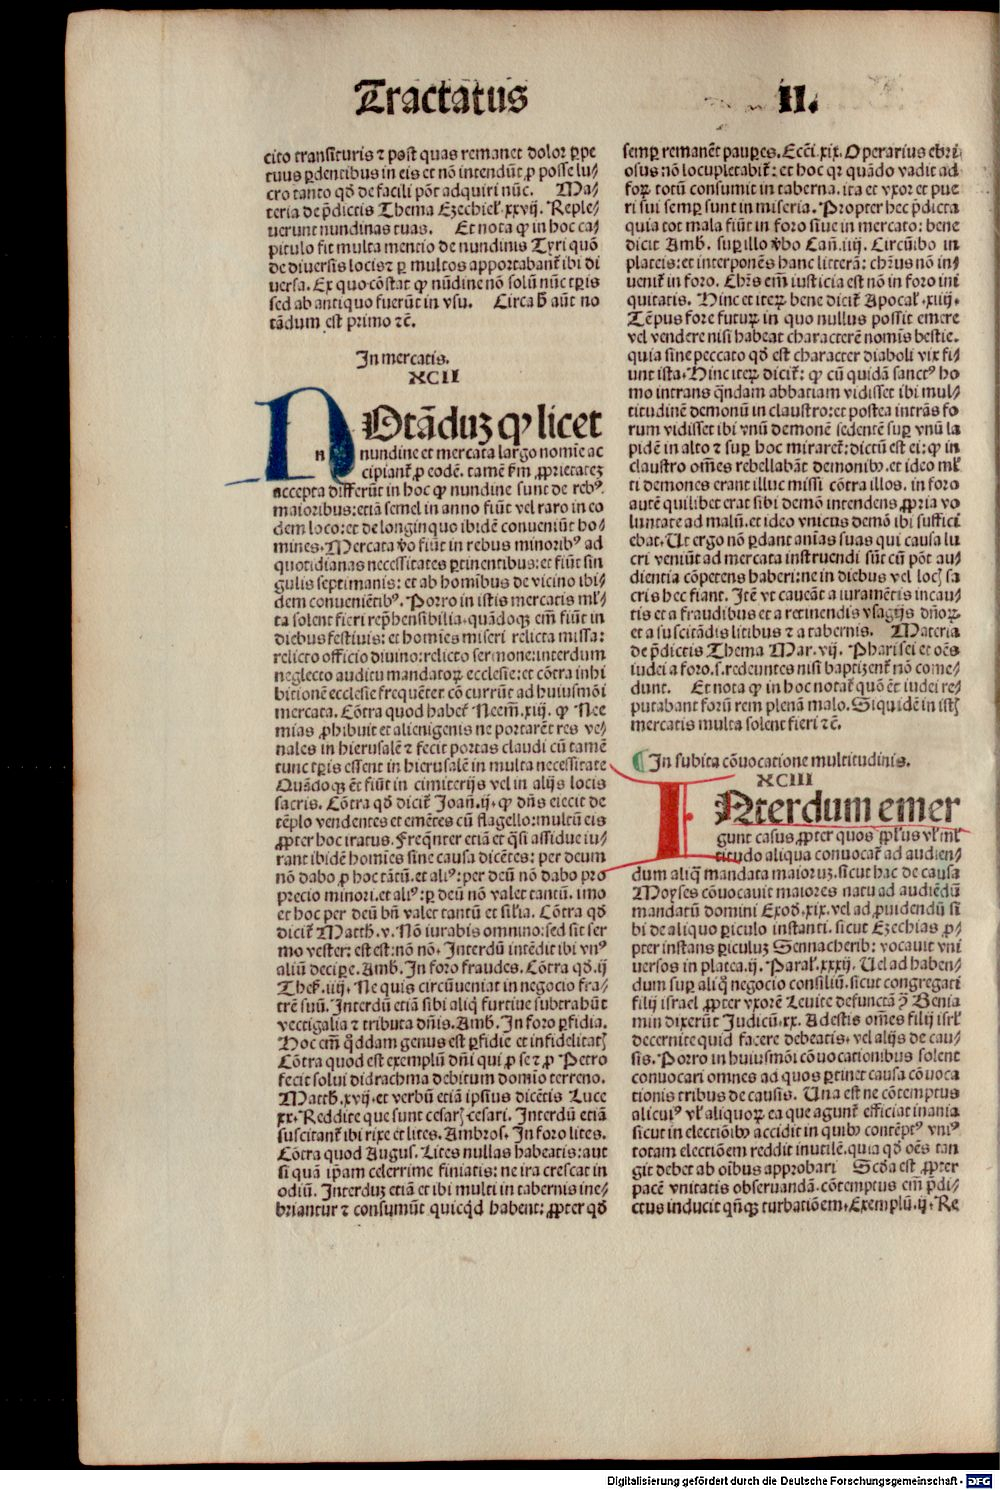 Tractatus II.
cito transituris ⁊ post quas remanet dolor ꝑpe
tuus ꝑdentibus in eis et nō intendūt ꝓ posse lu⸗
cro tanto qd̄ de facili pōt adquiri nūc. Ma⸗
teria de p̄dictis Thema Ezechiel̕ .xxvij. Reple⸗
uerunt nundinas tuas. Et nota ꝙ in hoc ca⸗
pitulo fit multa mentio de nundinis Tyri quō
de diuersis locis ⁊ ꝑ multos apportabant̄ ibi di
uersa. Ex quo cōstat ꝙ nūdine nō solū nūc tꝑis
sed ab antiquo fuerūt in vsu. Circa h̄ aūt no
tādum est primo ⁊c̄.
In mercatis.
XCII
n
NOtāduꝫ ꝙ licet
nundine et mercata largo nomīe ac
cipiant̄ ꝓ eodē. tamē ẜm ꝓprietateꝫ
accepta differūt in hoc ꝙ nundine sunt de rebꝰ.
maioribus: etiā semel in anno fiūt vel raro in eo
dem loco: et de longinquo ibidē conueniūt ho⸗
mines. Mercata v̄o fiūt in rebus minoribꝰ ad
quotidianas necessitates ꝑtinentibus: et fiūt sin
gulis septimanis: et ab homībus de vicino ibi⸗
dem conueniētibꝰ. Porro in istis mercatis ml̕⸗
ta solent fieri rep̄hensibilia. quādoqꝫ em̄ fiūt in
diebus festiuis: et homīes miseri relicta missa:
relicto officio diuino: relicto sermone: interdum
neglecto auditu mandatoꝝ ecclesie: et cōtra inhi
bitionē ecclesie frequēter cōcurrūt ad huiusmōi
mercata. Cōtra quod habet̄ Neem̄. xiij. ꝙ Nee
mias ꝓhibuit et alienigenis ne portarēt res ve⸗
nales in hierusalē ⁊ fecit portas claudi cū tamē
tunc tꝑis essent in hierusalē in multa necessitate
Quādoqꝫ ēt fiūt in cimiterijs vel in alijs locis
sacris. Cōtra qd̄ dicit̄ Joan̄. ij. ꝙ dn̄s eiecit de
tēplo vendentes et emētes cū flagello: multū eis
ꝓpter hoc iratus. Freqn̄ter etiā et qͣsi assidue iu⸗
rant ibidē homīes sine causa dicētes: per deum
nō dabo ꝓ hoc tātū. et aliꝰ: per deū nō dabo pro
precio minori. et aliꝰ: ꝑ deū nō valet tantū. imo
et hoc per deū bn̄ valet tantū et sil̕ia. Cōtra qd̄
dicit̄ Matth̄. v. Nō iurabis omnino: sed sit ser
mo vester: est est: nō nō. Interdū intēdit ibi vnꝰ
aliū decipe. Amb̄. In foro fraudes. Cōtra qd̄. ij
Thes̄. iiij. Ne quis circūueniat in negocio fra⸗
trē suū. Interdū etiā sibi aliqͥ furtiue subtrahūt
vectigalia ⁊ tributa dn̄is. Amb̄. In foro ꝑfidia.
Hoc em̄ qͦddam genus est ꝑfidie et infidelitatꝭ
Cōtra quod est exemplū dn̄i qui ꝓ se ⁊ ꝓ Petro
fecit solui didrachma debitum domīo terreno.
Matth̄. xvij. et verbū etiā ipsius dicētis Luce
xx. Reddite que sunt cesarꝭ cesari. Interdū etiā
suscitant̄ ibi rixe et lites. Ambros. In foro lites.
Cōtra quod Augus. Lites nullas habeatis: aut
si quā ip̄am celerrime finiatis: ne ira crescat in
odiū. Interduꝫ etiā et ibi multi in tabernis ine⸗
briantur ⁊ consumūt quicqͥd habent: ꝓpter qd̄
semꝑ remanēt pauꝑes. Ecci̕. xix. Operarius ebri
osus nō locupletabit̄: et hoc qꝛ quādo vadit ad
foꝝ totū consumit in taberna. ita et vxor et pue
ri sui semꝑ sunt in miseria. Propter hec p̄dicta
quia tot mala fiūt in foro siue in mercato: bene
dicit Amb̄. suꝑ illo v̄bo Can̄. iij. Circūibo in
plateis: et interponēs hanc litterā: chr̄us nō in⸗
uenit̄ in foro. Chr̄s em̄ iusticia est nō in foro ini
quitatis. Hinc et iteꝝ bene dicit̄ Apocal̕. xiij.
Tēpus fore futuꝝ in quo nullus possit emere
vel vendere nisi habeat characterē nomīs bestie.
quia sine peccato qd̄ est character diaboli vix fi⸗
unt ista. Hinc iteꝝ dicit̄: ꝙ cū quidā sanctꝰ ho
mo intrans qͣndam abbatiam vidisset ibi mul⸗
titudinē demonū in claustro: et postea intrās fo
rum vidisset ibi vnū demonē sedentē suꝑ vnū la
pidē in alto ⁊ suꝑ hoc miraret̄: dictū est ei: ꝙ in
claustro om̄es rebellabāt demonibꝰ. et ideo ml̕
ti demones erant illuc missi cōtra illos. in foro
autē quilibet erat sibi demō intendens ꝓpria vo
luntate ad malū. et ideo vnicus demō ibi suffici
ebat. Ut ergo nō ꝑdant aīas suas qui causa lu
cri veniūt ad mercata instruendi sūt cū pōt au⸗
dientia cōpetens haberi: ne in diebus vel locꝭ sa
cris hec fiant. Itē vt caueāt a iuramētis incau⸗
tis et a fraudibus et a retinendis vsagijs dn̄oꝝ.
et a suscitādis litibus ⁊ a tabernis. Materia
de p̄dictis Thema Mar. vij. Pharisei et oēs
iudei a foro. s. redeuntes nisi baptizent̄ nō come⸗
dunt. Et nota ꝙ in hoc notat̄ quō ēt iudei re⸗
putabant forū rem plenā malo. Siquidē in istꝭ
mercatis multa solent fieri ⁊c̄.
¶ In subita cōuocatione multitudinis.
XCIII
INterdum emer
gunt casus ꝓpter quos ppl̕us vl̕ ml̕
titudo aliqua conuocat̄ ad audien⸗
dum aliqͣ mandata maioruꝫ. sicut hac de causa
Moyses cōuocauit maiores natu ad audiēdū
mandatū domini Exod̄. xix. vel ad ꝓuidendū si
bi de aliquo ꝑiculo instanti. sicut Ezechias ꝓ⸗
pter instans ꝑiculuꝫ Sennacherib: vocauit vni
uersos in platea. ij. Paral̕. xxxij. Uel ad haben⸗
dum suꝑ aliqͦ negocio consiliū. sicut congregati
filij israel ꝓpter vxorē Leuite defunctā ī Benia
min dixerūt Judicū. xx. Adestis om̄es filij isrl̕
decernite quid facere debeatis. vel alijs de cau⸗
sis. Porro in huiusmōi cōuocationibus solent
conuocari omnes ad quos ꝑtinet causa cōuoca
tionis tribus de causis. Una est ne cōtemptus
alicuiꝰ vl̕ aliquoꝝ ea que agunt̄ efficiat inania
sicut in electiōibꝰ accidit in quibꝰ contēptꝰ vniꝰ
totam electiōem reddit inutilē. quia qd̄ oēs tan
git debet ab oībus approbari Scd̄a est ꝓpter
pacē vnitatis obseruandā. cōtemptus em̄ p̄di⸗
ctus inducit qn̄qꝫ turbatiōem. Exemplū. ij. Re
Digitalisierung gefördert durch die Deutsche Forschungsgemeinschaft - DFG